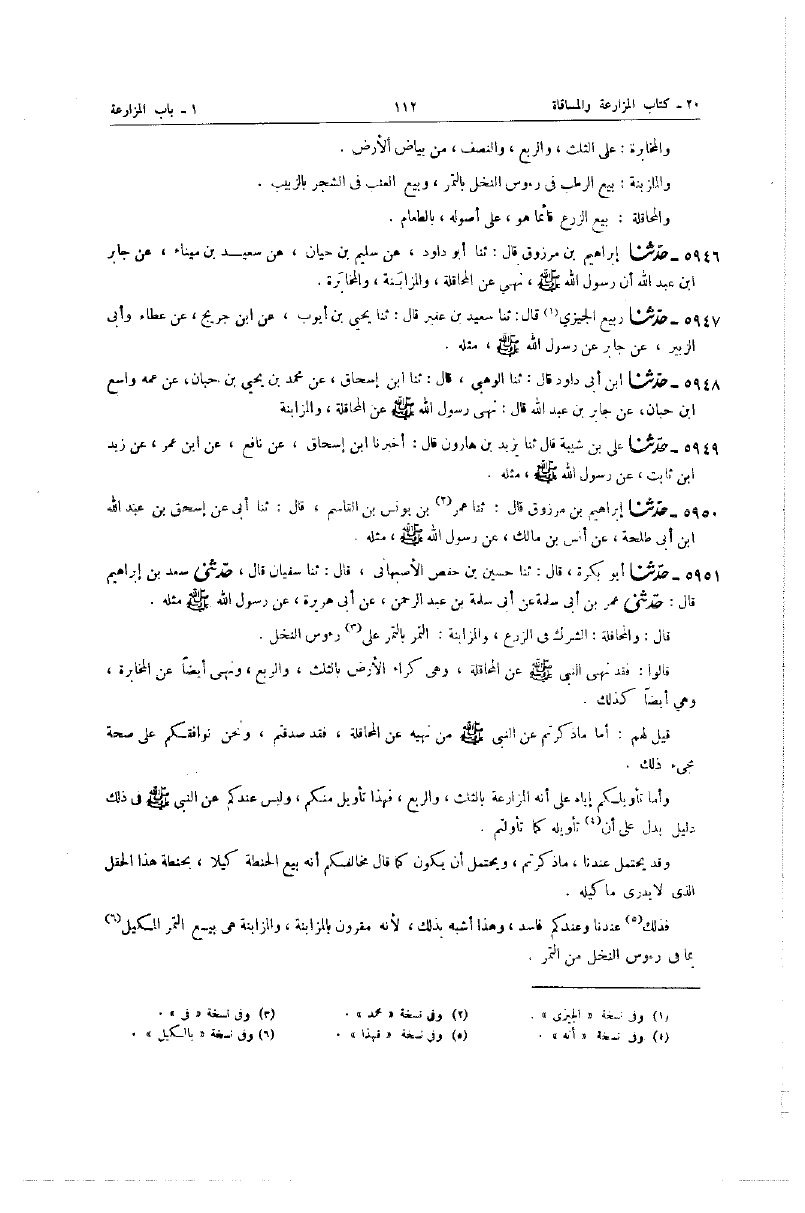 ٢٠ ـ كتاب المزارعة والمساقاة ١١٢ ١ ـ باب المزارعة
والمخابرة : على الثلث ، والربع ، والنصف ، من بياض الأرض .
والمزابنة : بيع الرطب فى رءوس النخل بالتمر ، وبيع العنب فى الشجر بالزبيب .
والمحاقلة : بيع الزرع قائما هو ، على أصوله ، بالطعام .
٥٩٤٦ ـ حدثنا إبراهيم بن مرزوق قال : ثنا أبو داود ، عن سليم بن حيان ، عن سعيد بن ميناء ، عن جابر
ابن عبد الله أن رسول الله ﷺ ، نهى عن المحاقلة ، والمزابَنة ، والمخابَرة .
٥٩٤٧ ـ حدثنا ربيع الجيزي(١) قال : ثنا سعيد بن عفير قال : ثنا يحيى بن أيوب ، عن ابن جريج ، عن عطاء وأبى
الزبير ، عن جابر عن رسول الله ﷺ ، مثله .
٥٩٤٨ ـ حدثنا ابن أبى داود قال : ثنا الوهبى ، قال : ثنا ابن إسحاق ، عن محمد بن يحيى بن حبان، عن عمه واسع
ابن حبان، عن جابر بن عبد الله قال : نهى رسول الله ﷺ عن المحاقلة ، والمزابنة
٥٩٤٩ ـ حدثنا على بن شيبة قال ثنا يزيد بن هارون قال : أخبرنا ابن إسحاق ، عن نافع ، عن ابن عمر ، عن زيد
ابن ثابت ، عن رسول الله ﷺ ، مثله .
٥٩٥٠ ـ حدثنا إبراهيم بن مرزوق قال : ثنا عمر(٢) بن يونس بن القاسم ، قال : ثنا أبى عن إسحق بن عبد الله
ابن أبى طلحة ، عن أنس بن مالك ، عن رسول الله ﷺ ، مثله .
٥٩٥١ ـ حدثنا أبو بكرة ، قال : ثنا حسين بن حفص الأصبهانى ، قال : ثنا سفيان قال ، حدثنى سعد بن إبراهيم
قال : حدثنى عمر بن أبى سلمة عن أبى سلمة بن عبد الرحمن ، عن أبى هريرة ، عن رسول الله ﷺ مثله .
قال : والمحاقلة : الشرك فى الزرع ، والمزابنة : التمر بالتمر على(٣) رءوس النخل .
قالوا : فقد نهى النبى ﷺ عن المحاقلة ، وهى كراء الأرض بالثلث ، والربع ، ونهى أيضاً عن المخابرة ،
وهي أيضاً كذلك .
قيل لهم : أما ماذكرتم عن النبى ﷺ من نهيه عن المحاقلة ، فقد صدقتم ، ونحن نوافقكم على صحة
مجىء ذلك .
وأما تأويلكم إياه على أنه المزارعة بالثلث ، والربع ، فهذا تأويل منكم ، وليس عندكم عن النبى ﷺ فى ذلك
دليل يدل على أن(٤) تأويله كما تأولتم .
وقد يحتمل عندنا ، ماذكرتم ، ويحتمل أن يكون كما قال مخالفكم أنه بيع الحنطة كيلا ، بحنطة هذا الحقل
الذى لايدرى ما كيله .
فذلك(٥) عندنا وعندكم فاسد ، وهذا أشبه بذلك ، لأنه مقرون بالمزابنة ، والمزابنة هى بيع التمر المكيل(٦)
بما فى رءوس النخل من التمر .
(١) وفى نسخة « الجيزى » . (٢) وفى نسخة « محمد » . (٣) وفى نسخة « فى » .
(٤) وفى نسخة « أنه » . (٥) وفى نسخة « فهذا » . (٦) وفى نسخة « بالكيل » .